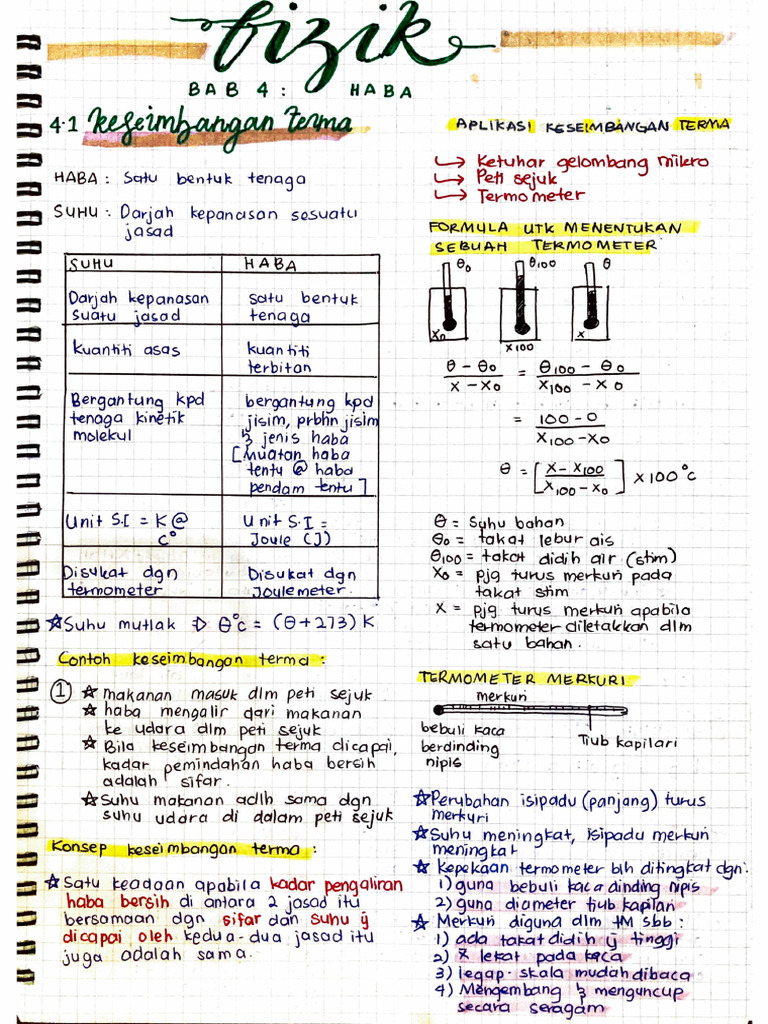 fizik
BAB 4: HABA
4.1 keseimbangan terma
HABA: Satu bentuk tenaga
SUHU: Darjah kepanasan sesuatu
jasad
SUHU HABA
Darjah kepanasan
suatu jasad
satu bentuk
tenaga
Kuantiti asas
kuantiti
terbitan
Bergantung kpd
tenaga kinetik
molekul
bergantung kpd
jisim, prbhn jisim
& jenis haba
[Muatan haba
tentu @ haba
pendam tentu]
Unit S.I = K @
C°
Unit S.I =
Joule (J)
Disukat dgn
termometer
Disukat dgn
Joulemeter.
☆ Suhu mutlak ⇒ θ°c = (θ+273) K
Contoh keseimbangan terma:
① ☆ makanan masuk dlm peti sejuk
☆ haba mengalir dari makanan
ke udara dlm peti sejuk
☆ Bila keseimbangan terma dicapai,
kadar pemindahan haba bersih
adalah sifar.
☆ Suhu makanan adlh sama dgn
suhu udara di dalam peti sejuk
Konsep keseimbangan terma:
☆ Satu keadaan apabila kadar pengaliran
haba bersih di antara 2 jasad itu
bersamaan dgn sifar dan suhu yg
dicapai oleh kedua-dua jasad itu
juga adalah sama.
APLIKASI KESEIMBANGAN TERMA
↳ Ketuhar gelombang mikro
↳ Peti sejuk
↳ Termometer
FORMULA UTK MENENTUKAN
SEBUAH TERMOMETER
θ₀ θ₁₀₀ θ
x₀ x100 x
θ - θ₀ / x - x₀ = θ₁₀₀ - θ₀ / x₁₀₀ - x₀
= 100 - 0 / x₁₀₀ - x₀
θ = [x - x₁₀₀ / x₁₀₀ - x₀] x 100°c
θ = Suhu bahan
θ₀ = takat lebur ais
θ₁₀₀ = takat didih air (stim)
x₀ = pjg turus merkuri pada
takat stim
x = pjg turus merkuri apabila
termometer diletakkan dlm
satu bahan.
TERMOMETER MERKURI
merkuri
bebuli kaca
berdinding
nipis
Tiub kapilari
☆ Perubahan isipadu (panjang) turus
merkuri
☆ Suhu meningkat, isipadu merkuri
meningkat
☆ Kepekaan termometer blh ditingkat dgn:
1) guna bebuli kaca dinding nipis
2) guna diameter tiub kapilari
☆ Merkuri diguna dlm TM sbb:
1) ada takat didih yg tinggi
2) X lekat pada kaca
3) legap. skala mudah dibaca
4) Mengembang & menguncup
secara seragam